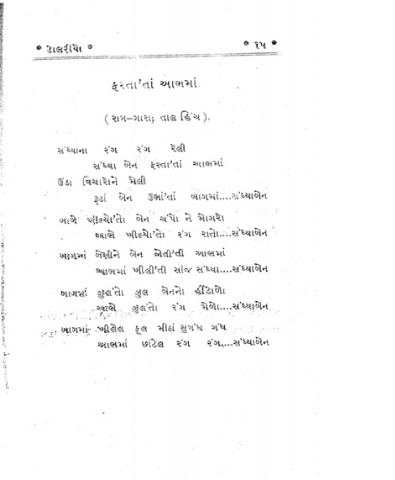 • ડાલરીયો • • ૨૫ •
ફરતા'તાં આભમાં
(રાગ-ગારા; તાલ હિંચ).
સંધ્યાના રંગ રંગ રેલી
સંધ્યા બેન ફરતા'તાં આભમાં
ઉંડા વિચારોને મેલી
રૂડાં બેન ઉભાં'તાં બાગમાં....સંધ્યાબેન
બાગે ખીલ્યો'તો બેન ચંપો ને મોગરો
આભે ખીલ્યો'તો રંગ રાતો...સંધ્યાબેન
બાગમાં બેસીને બેન જોતી'તી આભમાં
આભમાં ખીલી'તી સાંજ સંધ્યા....સંધ્યાબેન
બાગમાં ઝુલંતો ઝુલ બેનનો હીંડોળો
આભે ઝુલંતો રંગ મેળો....સંધ્યાબેન
બાગમાં ખીલેલ ફૂલ મીઠાં સુગંધ ગંધ
આભમાં છાંટેલ રંગ રંગ....સંધ્યાબેન